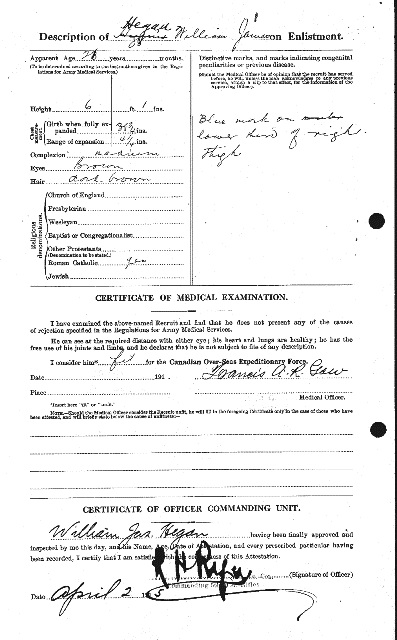 Hegan
Description of William James on Enlistment.
Apparent Age 28 years months.
(To be determined according to the instructions given in the Regulations for Army Medical Services.)
Distinctive marks, and marks indicating congenital
peculiarities or previous disease.
(Should the Medical Officer be of opinion that the recruit has served
before, he will, unless the man acknowledges to any previous
service, attach a slip to that effect, for the information of the
Approving Officer.)
Height 6 ft. 1 ins.
Chest measurement
Girth when fully expanded ins.
Range of expansion ins.
Complexion medium
Eyes Brown
Hair dark brown
Blue mark on
lower third of right
thigh
Religious denominations.
Church of England
Presbyterian
Wesleyan
Baptist or Congregationalist
Other Protestants
(Denomination to be stated.)
Roman Catholic yes
Jewish
CERTIFICATE OF MEDICAL EXAMINATION.
I have examined the above-named Recruit and find that he does not present any of the causes
of rejection specified in the Regulations for Army Medical Services.
He can see at the required distance with either eye; his heart and lungs are healthy; he has the
free use of his joints and limbs, and he declares that he is not subject to fits of any description.
I consider him* fit for the Canadian Over-Seas Expeditionary Force.
Date 191
Francis A. R. Gow
Place
Medical Officer.
*Insert here "fit" or "unfit."
NOTE.—Should the Medical Officer consider the Recruit unfit, he will fill in the foregoing Certificate only in the case of those who have
been attested, and will briefly state below the cause of unfitness:—
CERTIFICATE OF OFFICER COMMANDING UNIT.
William Jas. Hegan having been finally approved and
inspected by me this day, and his Name, Age, Date of Attestation, and every prescribed particular having
been recorded, I certify that I am satisfied with the correctness of this Attestation.
(Signature of Officer)
Date April 2 1915